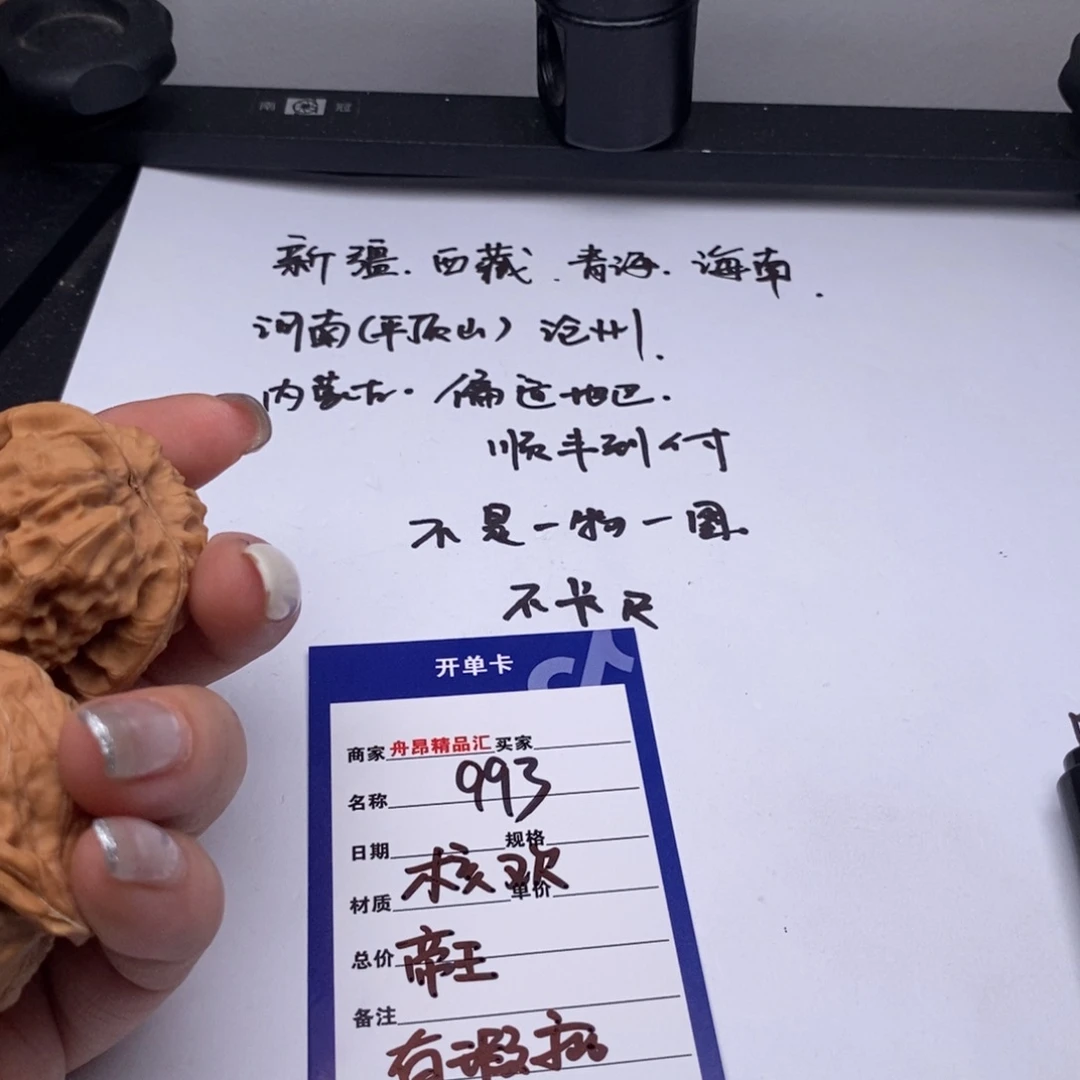 南 冠
新疆.西藏.青海.海南.
河南(平顶山) 沧州.
内蒙古.偏远地区.
顺丰到付
不是一物一图.
不卡尺
开单卡
商家 舟昂精品汇 买家
名称 993
日期 规格
核欢
材质 单价
总价 帝王
备注
有瑕疵